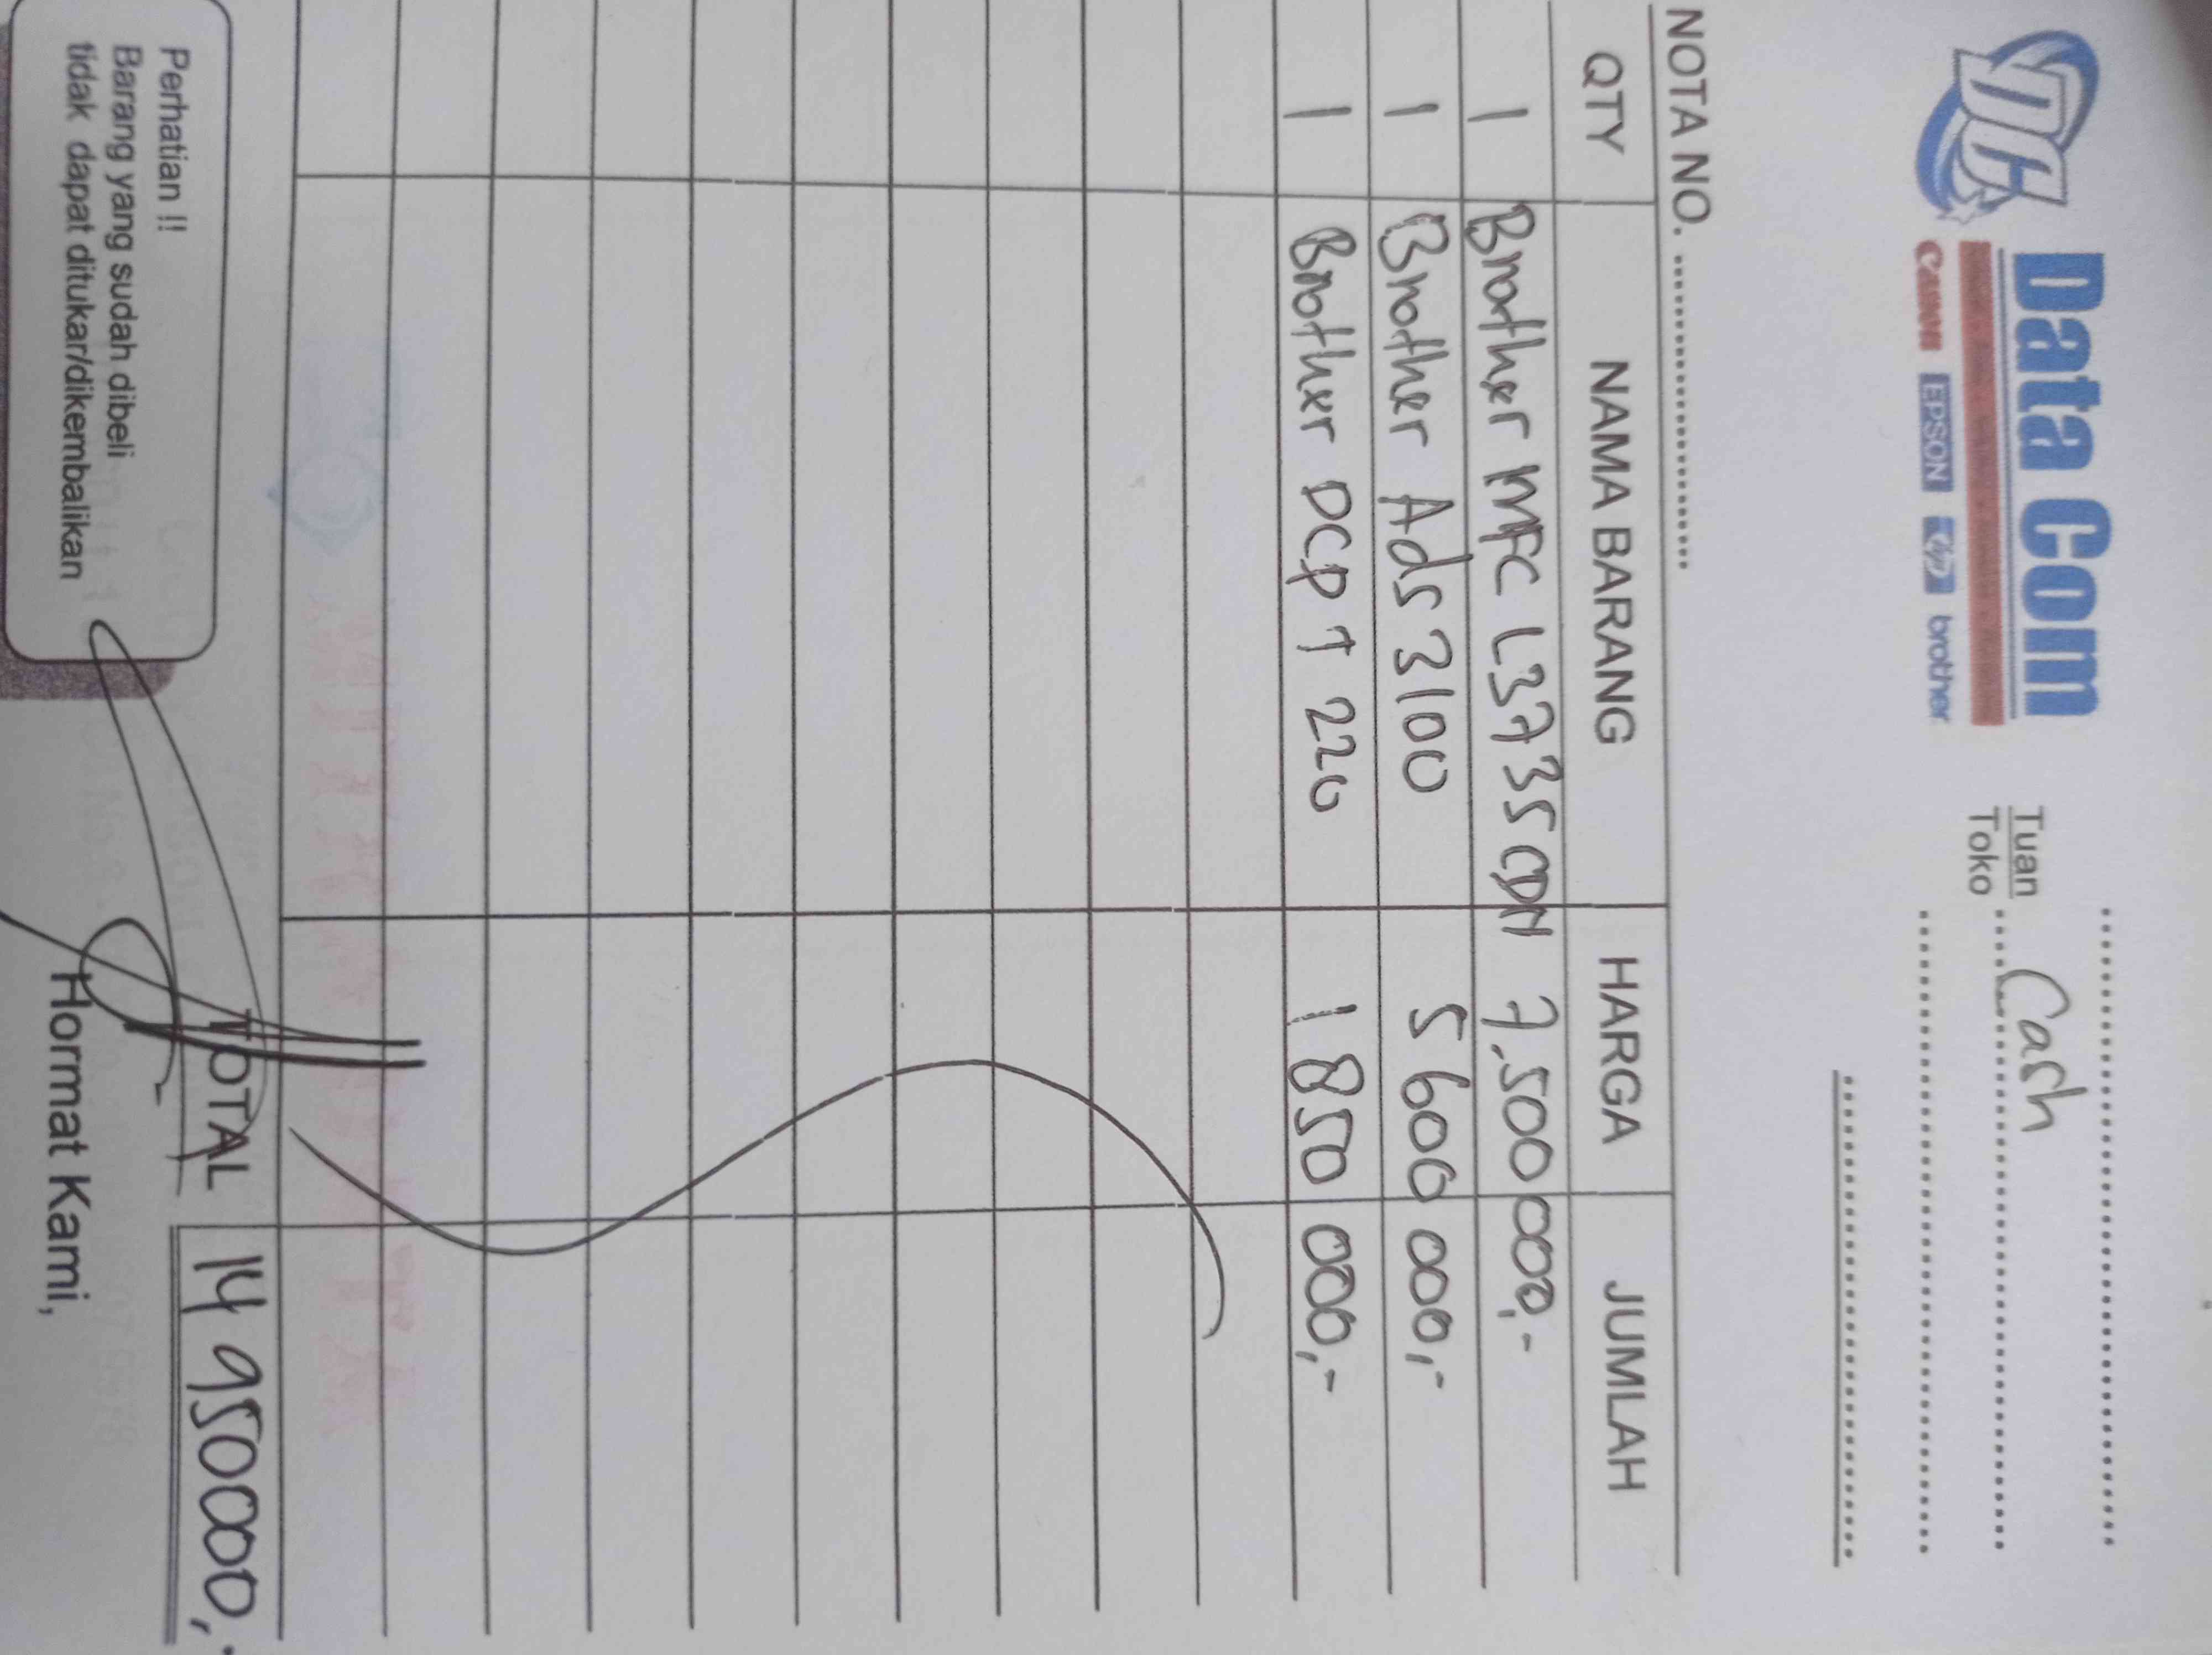 DC Data Com
Canon EPSON hp brother
Tuan
Toko Cash
NOTA NO.
QTY NAMA BARANG HARGA JUMLAH
1 Brother MFC L3735CDN 7,500000,-
1 Brother Ads 3100 5 600 000,-
1 Brother DCP T 220 1 850 000,-
TOTAL 14 950000,-
Perhatian !!
Barang yang sudah dibeli
tidak dapat ditukar/dikembalikan
Hormat Kami,